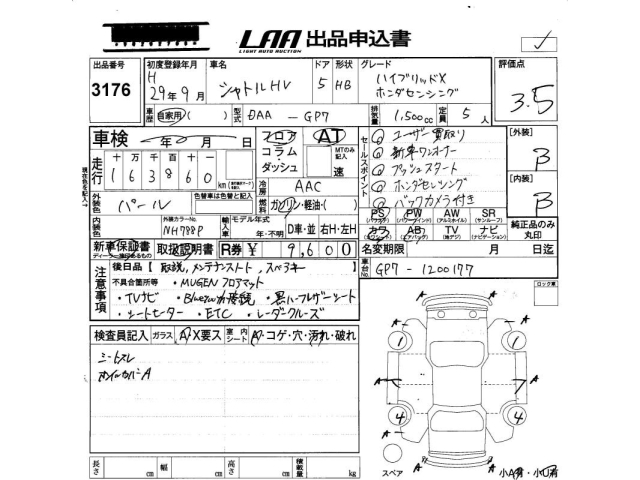 LAA 出品申込書
LIGHT AUTO AUCTION
出品番号 初度登録年月 車名 ドア 形状 グレード 評価点
3176 H 29年9月 シャトルHV 5 HB ハイブリッドX ホンダセンシング 3.5
車歴 自家用( ) 型式 DAA-GP7 排気量 1,500cc 定員 5人
車検 年 月 日 フロア コラム ダッシュ AT MTのみ記入 速
セールスポイント
① ユーザー買取り
② 新車ワンオーナー
③ プッシュスタート
④ ホンダセンシング
⑤ バックカメラ付き
[外装] B
[内装] B
走行 十万千百十 163860 km
冷房 AAC
外装色 パール 色替車は色替と記入 燃料 ガソリン・軽油・( )
外装カラーNo. NH788P 輸入車 モデル年式 年・不明 D車・並 右H・左H
PS PW AW SR
(パワステ) (パワーウィンド) (アルミホイル) (サンルーフ)
カワ AB TV ナビ
(エアバッグ) (地デジ) (ナビゲーション)
純正品のみ丸印
新車保証書 取扱説明書 R券 ¥ 9,600
名変期限 月 日迄
注意事項
後日品【取説,メンテナンスノート,スペアキー】
不具合箇所等 ・MUGENフロアマット
・TVナビ ・Bluetooth接続 ・黒ハーフレザーシート
・シートヒーター ・ETC ・レーダークルーズ
車台No. GP7-1200177
ロック車
検査員記入 ガラス A・X要ス 室内シート A・コゲ・穴・汚れ・破れ
シートスレ
ホイルカバーA
A A
1 1
A A
4 4
A A
スペア 小A有・小U有
長さ cm 幅 cm 高さ cm 積載量 kg